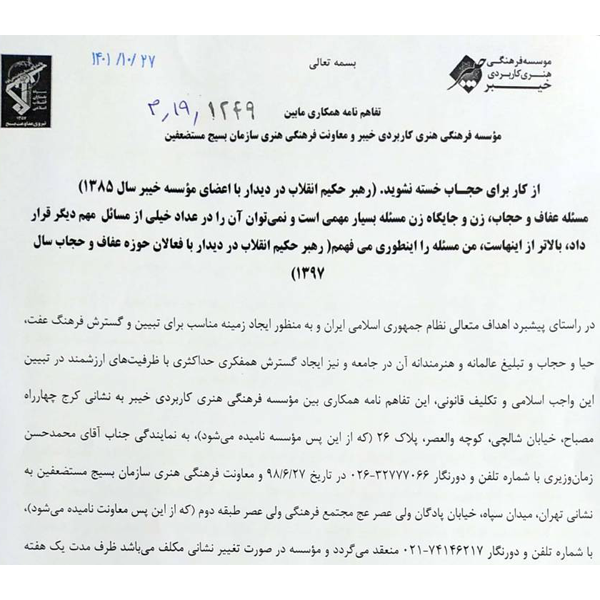 ۱۴۰۱/۱۰/۲۷
بسمه تعالی
موسسه فرهنگی
هنری کاربردی
خیبر
۱۲۴۹
تفاهم نامه همکاری مابین
مؤسسه فرهنگی هنری کاربردی خیبر و معاونت فرهنگی هنری سازمان بسیج مستضعفین
از کار برای حجـاب خسته نشوید. (رهبر حکیم انقلاب در دیدار با اعضای مؤسسه خیبر سال ۱۳۸۵)
مسئله عفاف و حجاب، زن و جایگاه زن مسئله بسیار مهمی است و نمی‌توان آن را در عداد خیلی از مسائل مهم دیگر قرار
داد، بالاتر از اینهاست، من مسئله را اینطوری می فهمم( رهبر حکیم انقلاب در دیدار با فعالان حوزه عفاف و حجاب سال
۱۳۹۷)
در راستای پیشبرد اهداف متعالی نظام جمهوری اسلامی ایران و به منظور ایجاد زمینه مناسب برای تبیین و گسترش فرهنگ عفت،
حیا و حجاب و تبلیغ عالمانه و هنرمندانه آن در جامعه و نیز ایجاد گسترش همفکری حداکثری با ظرفیت‌های ارزشمند در تبیین
این واجب اسلامی و تکلیف قانونی، این تفاهم نامه همکاری بین مؤسسه فرهنگی هنری کاربردی خیبر به نشانی کرج چهارراه
مصباح، خیابان شالچی، کوچه والعصر، پلاک ۲۶ (که از این پس مؤسسه نامیده می‌شود)، به نمایندگی جناب آقای محمدحسن
زمان‌وزیری با شماره تلفن و دورنگار ۳۲۷۷۷۰۶۶-۰۲۶ در تاریخ ۹۸/۶/۲۷ و معاونت فرهنگی هنری سازمان بسیج مستضعفین به
نشانی تهران، میدان سپاه، خیابان پادگان ولی عصر عج مجتمع فرهنگی ولی عصر طبقه دوم (که از این پس معاونت نامیده می‌شود)،
با شماره تلفن و دورنگار ۷۴۱۴۶۲۱۷-۰۲۱ منعقد می‌گردد و مؤسسه در صورت تغییر نشانی مکلف می‌باشد ظرف مدت یک هفته